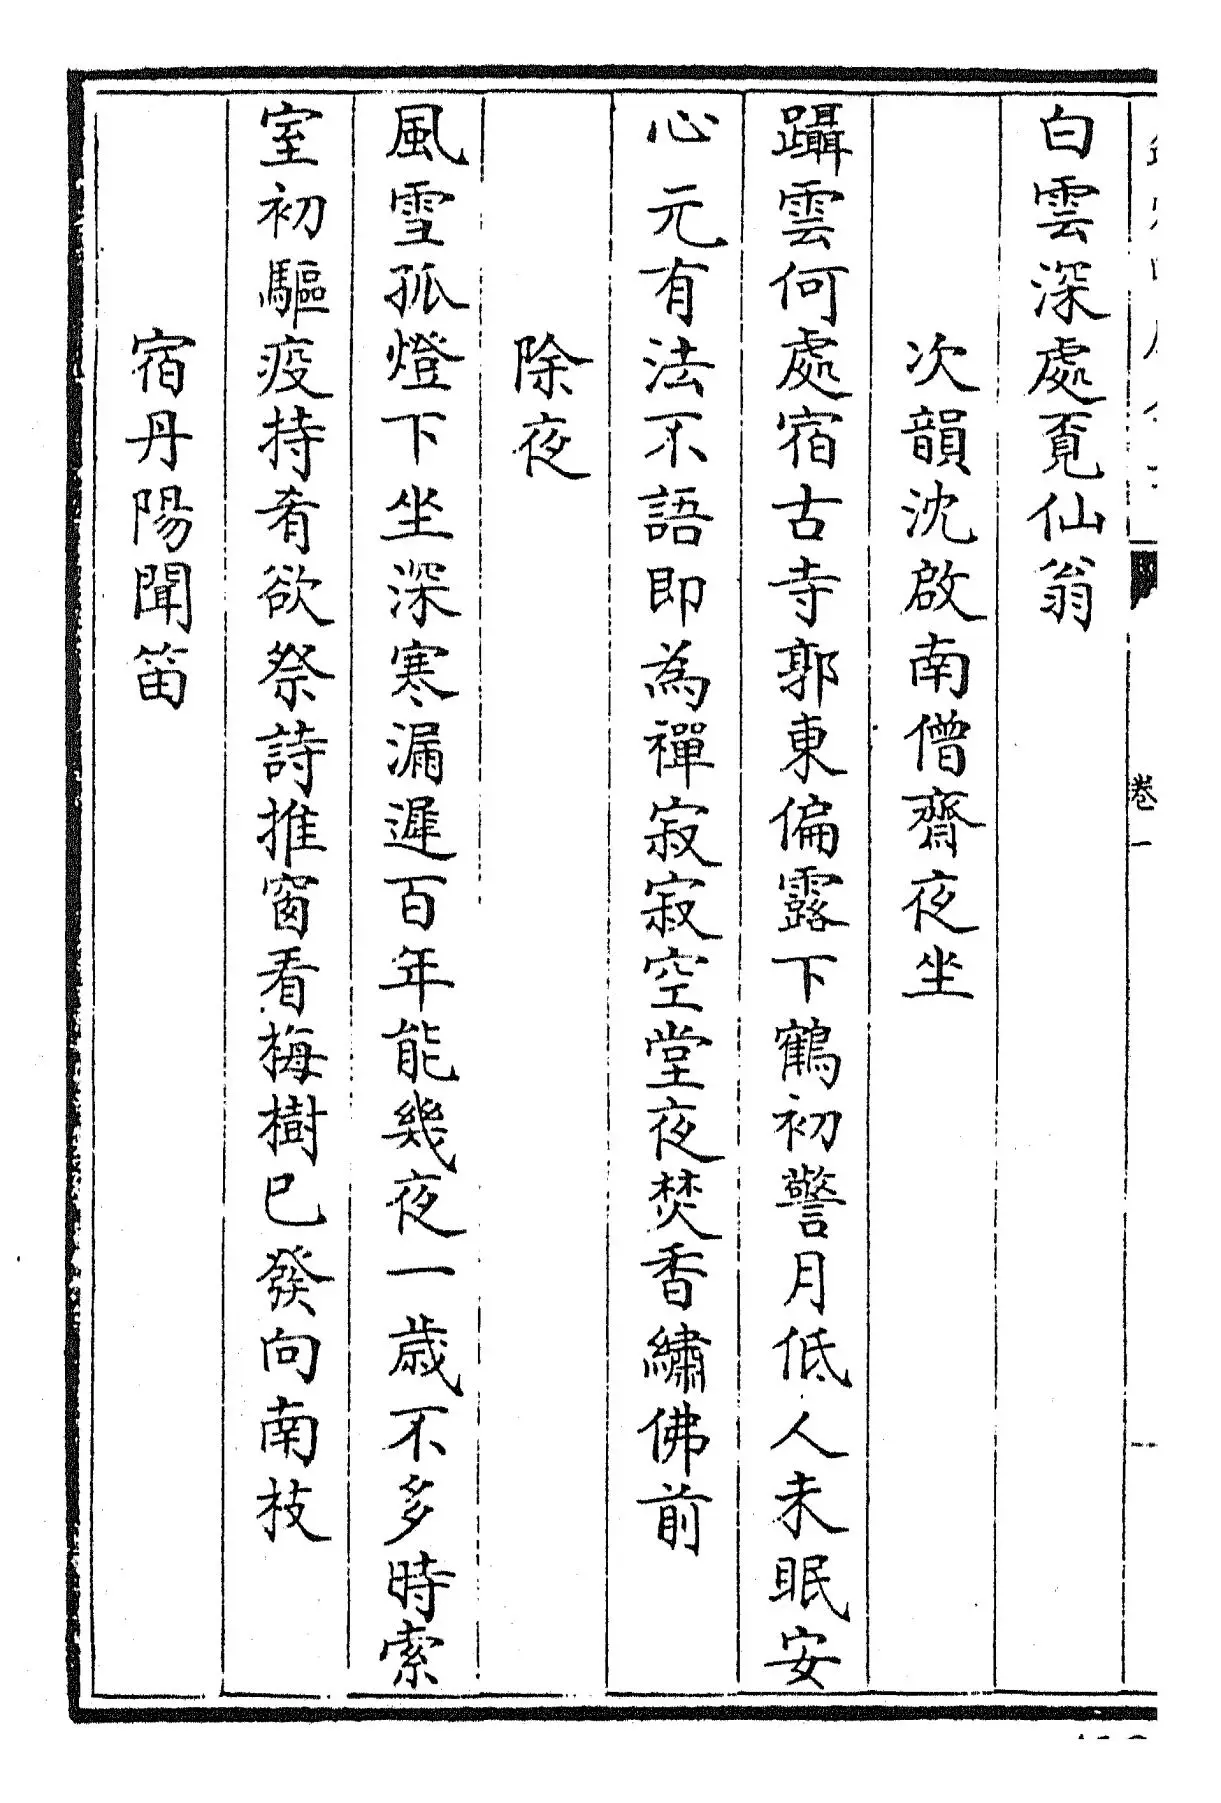 白雲深處覓仙翁
次韻沈啟南僧齋夜坐
躡雲何處宿古寺郭東偏露下鶴初警月低人未眠安
心元有法不語即為禪寂寂空堂夜焚香繡佛前
除夜
風雪孤燈下坐深寒漏遲百年能幾夜一歲不多時索
室初驅疫持肴欲祭詩推窗看梅樹巳發向南枝
宿丹陽聞笛
卷一